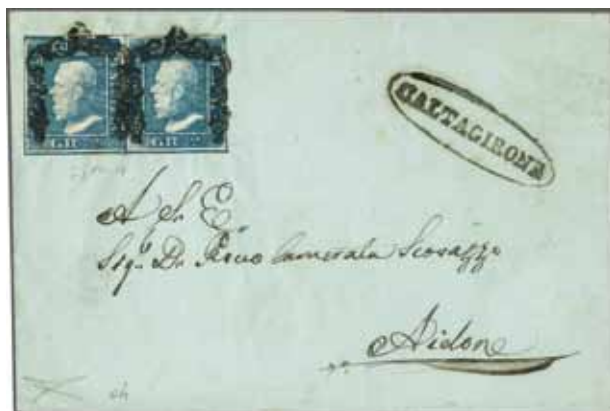 GR GR
CALTAGIRONE
A S. E.
Sig.r D. Rocco Camerata Scovazzo
Aidone